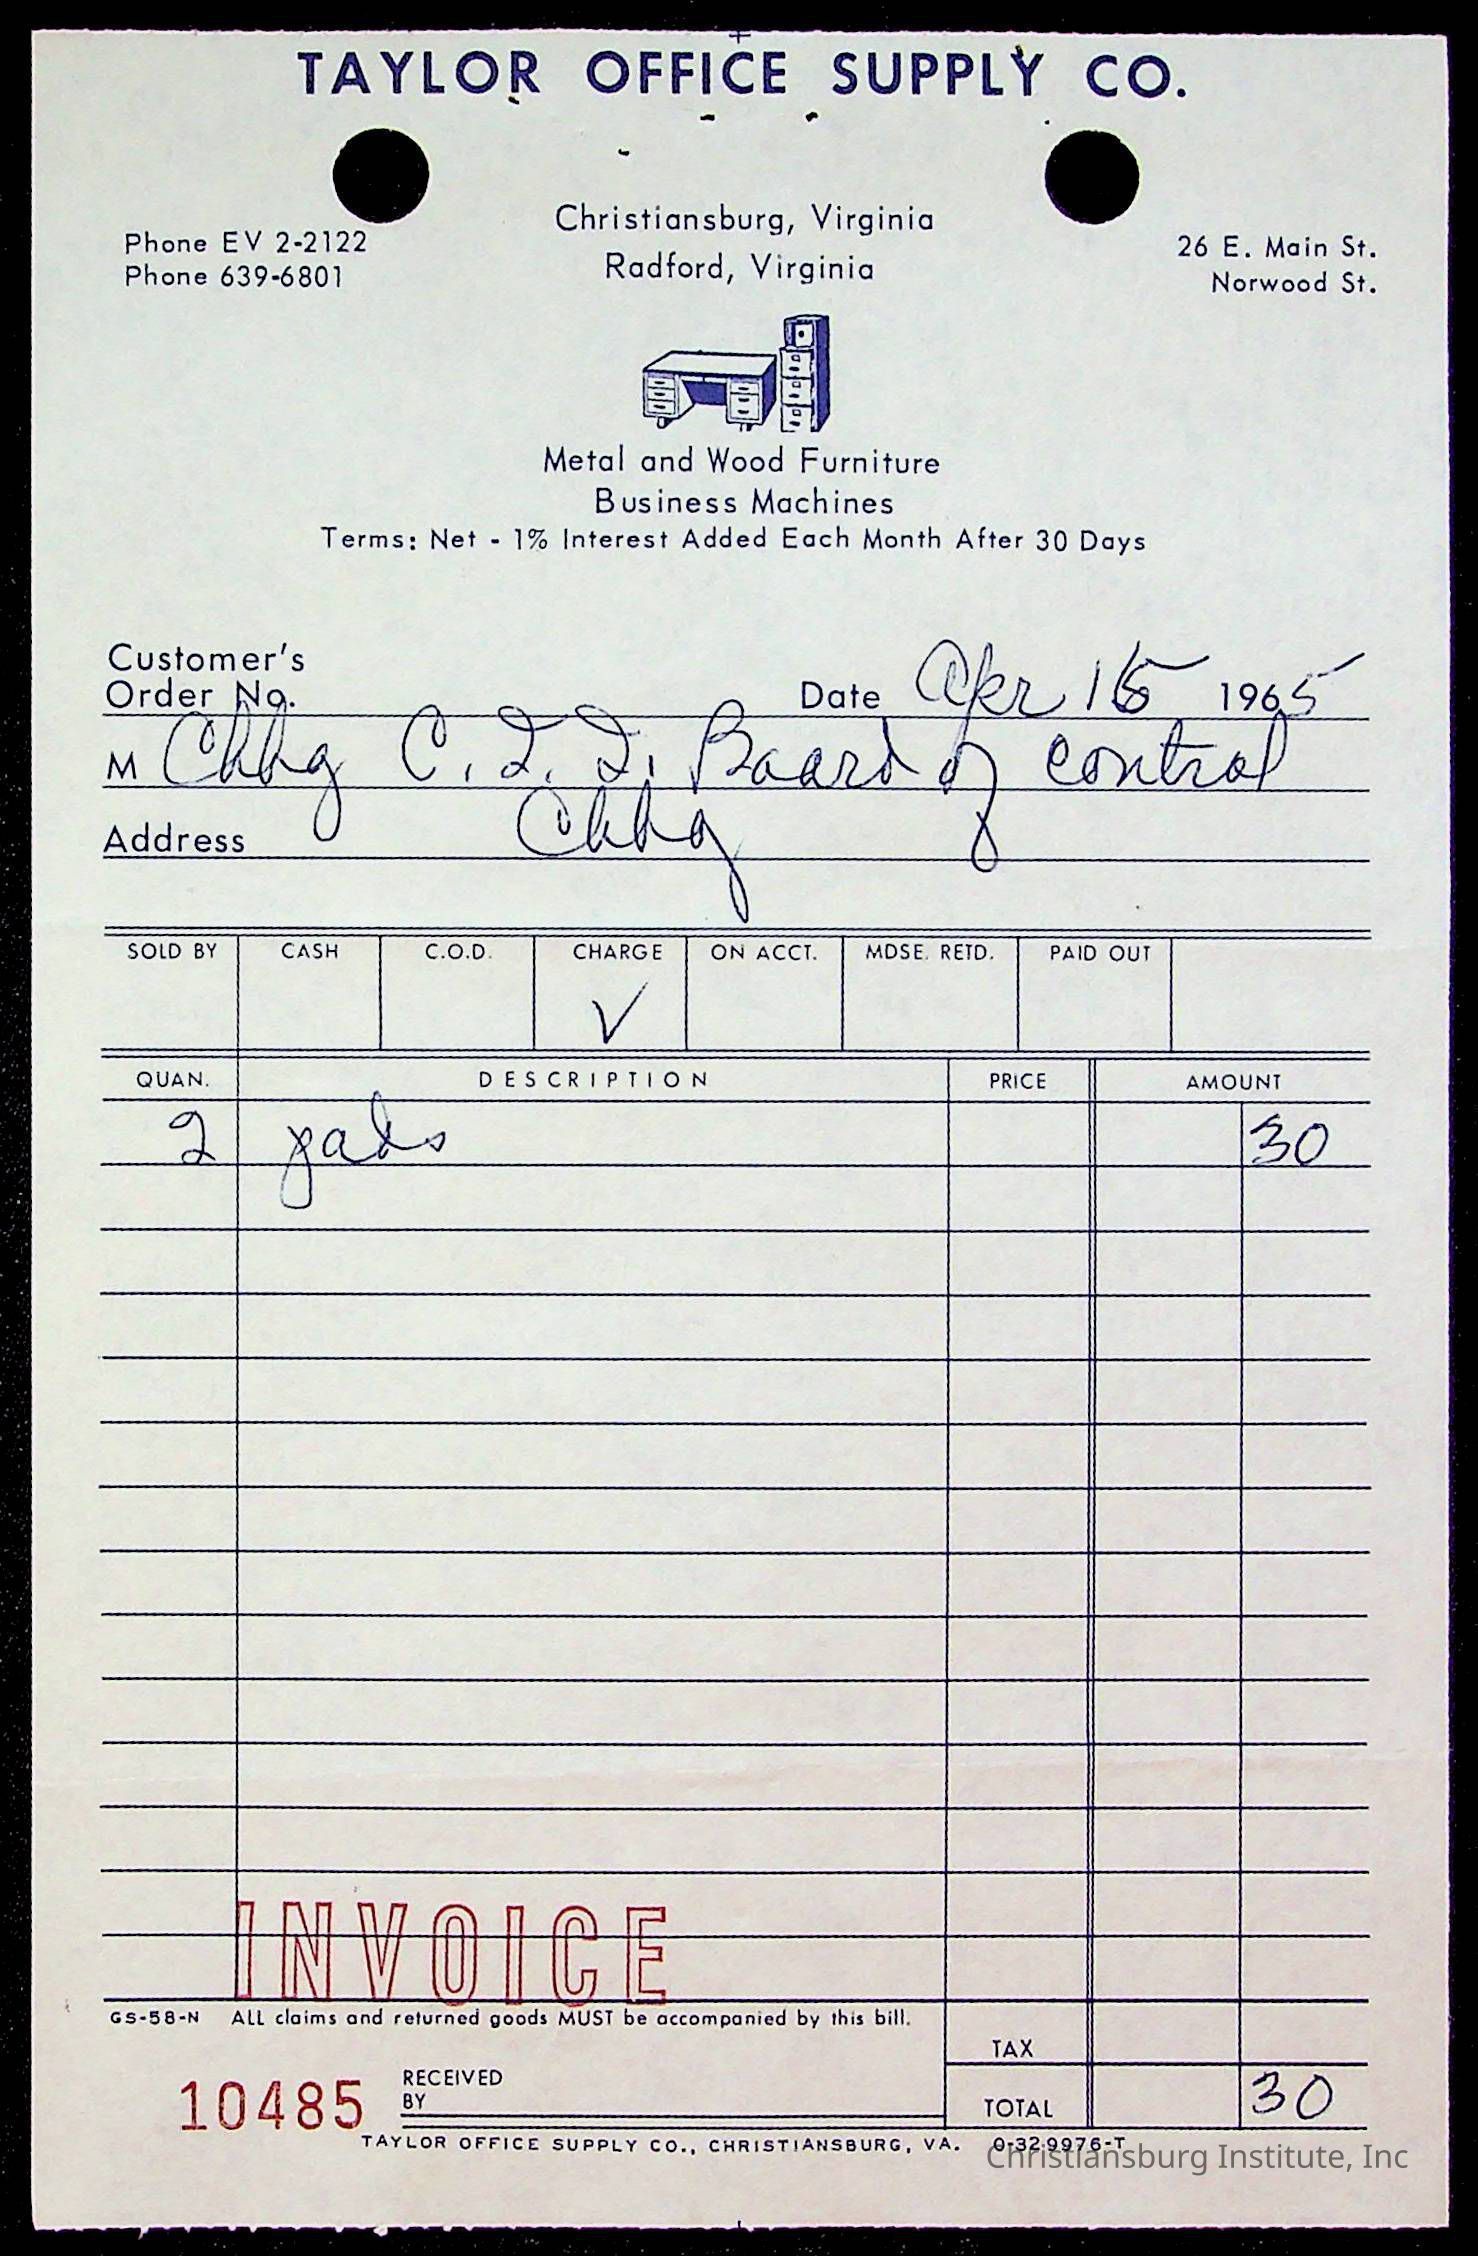 TAYLOR OFFICE SUPPLY CO.
Christiansburg, Virginia
Radford, Virginia
Phone EV 2-2122
Phone 639-6801
26 E. Main St.
Norwood St.
Metal and Wood Furniture
Business Machines
Terms: Net - 1% Interest Added Each Month After 30 Days
Customer's
Order No.
Date Apr 15 1965
M Chbg C. I. I. Board of control
Address Chbg
SOLD BY CASH C.O.D. CHARGE ON ACCT. MDSE. RETD. PAID OUT
✓
QUAN. DESCRIPTION PRICE AMOUNT
2 pads 30
INVOICE
GS-58-N ALL claims and returned goods MUST be accompanied by this bill.
TAX
10485 RECEIVED
BY
TOTAL 30
TAYLOR OFFICE SUPPLY CO., CHRISTIANSBURG, VA. 0-329976-T
Christiansburg Institute, Inc